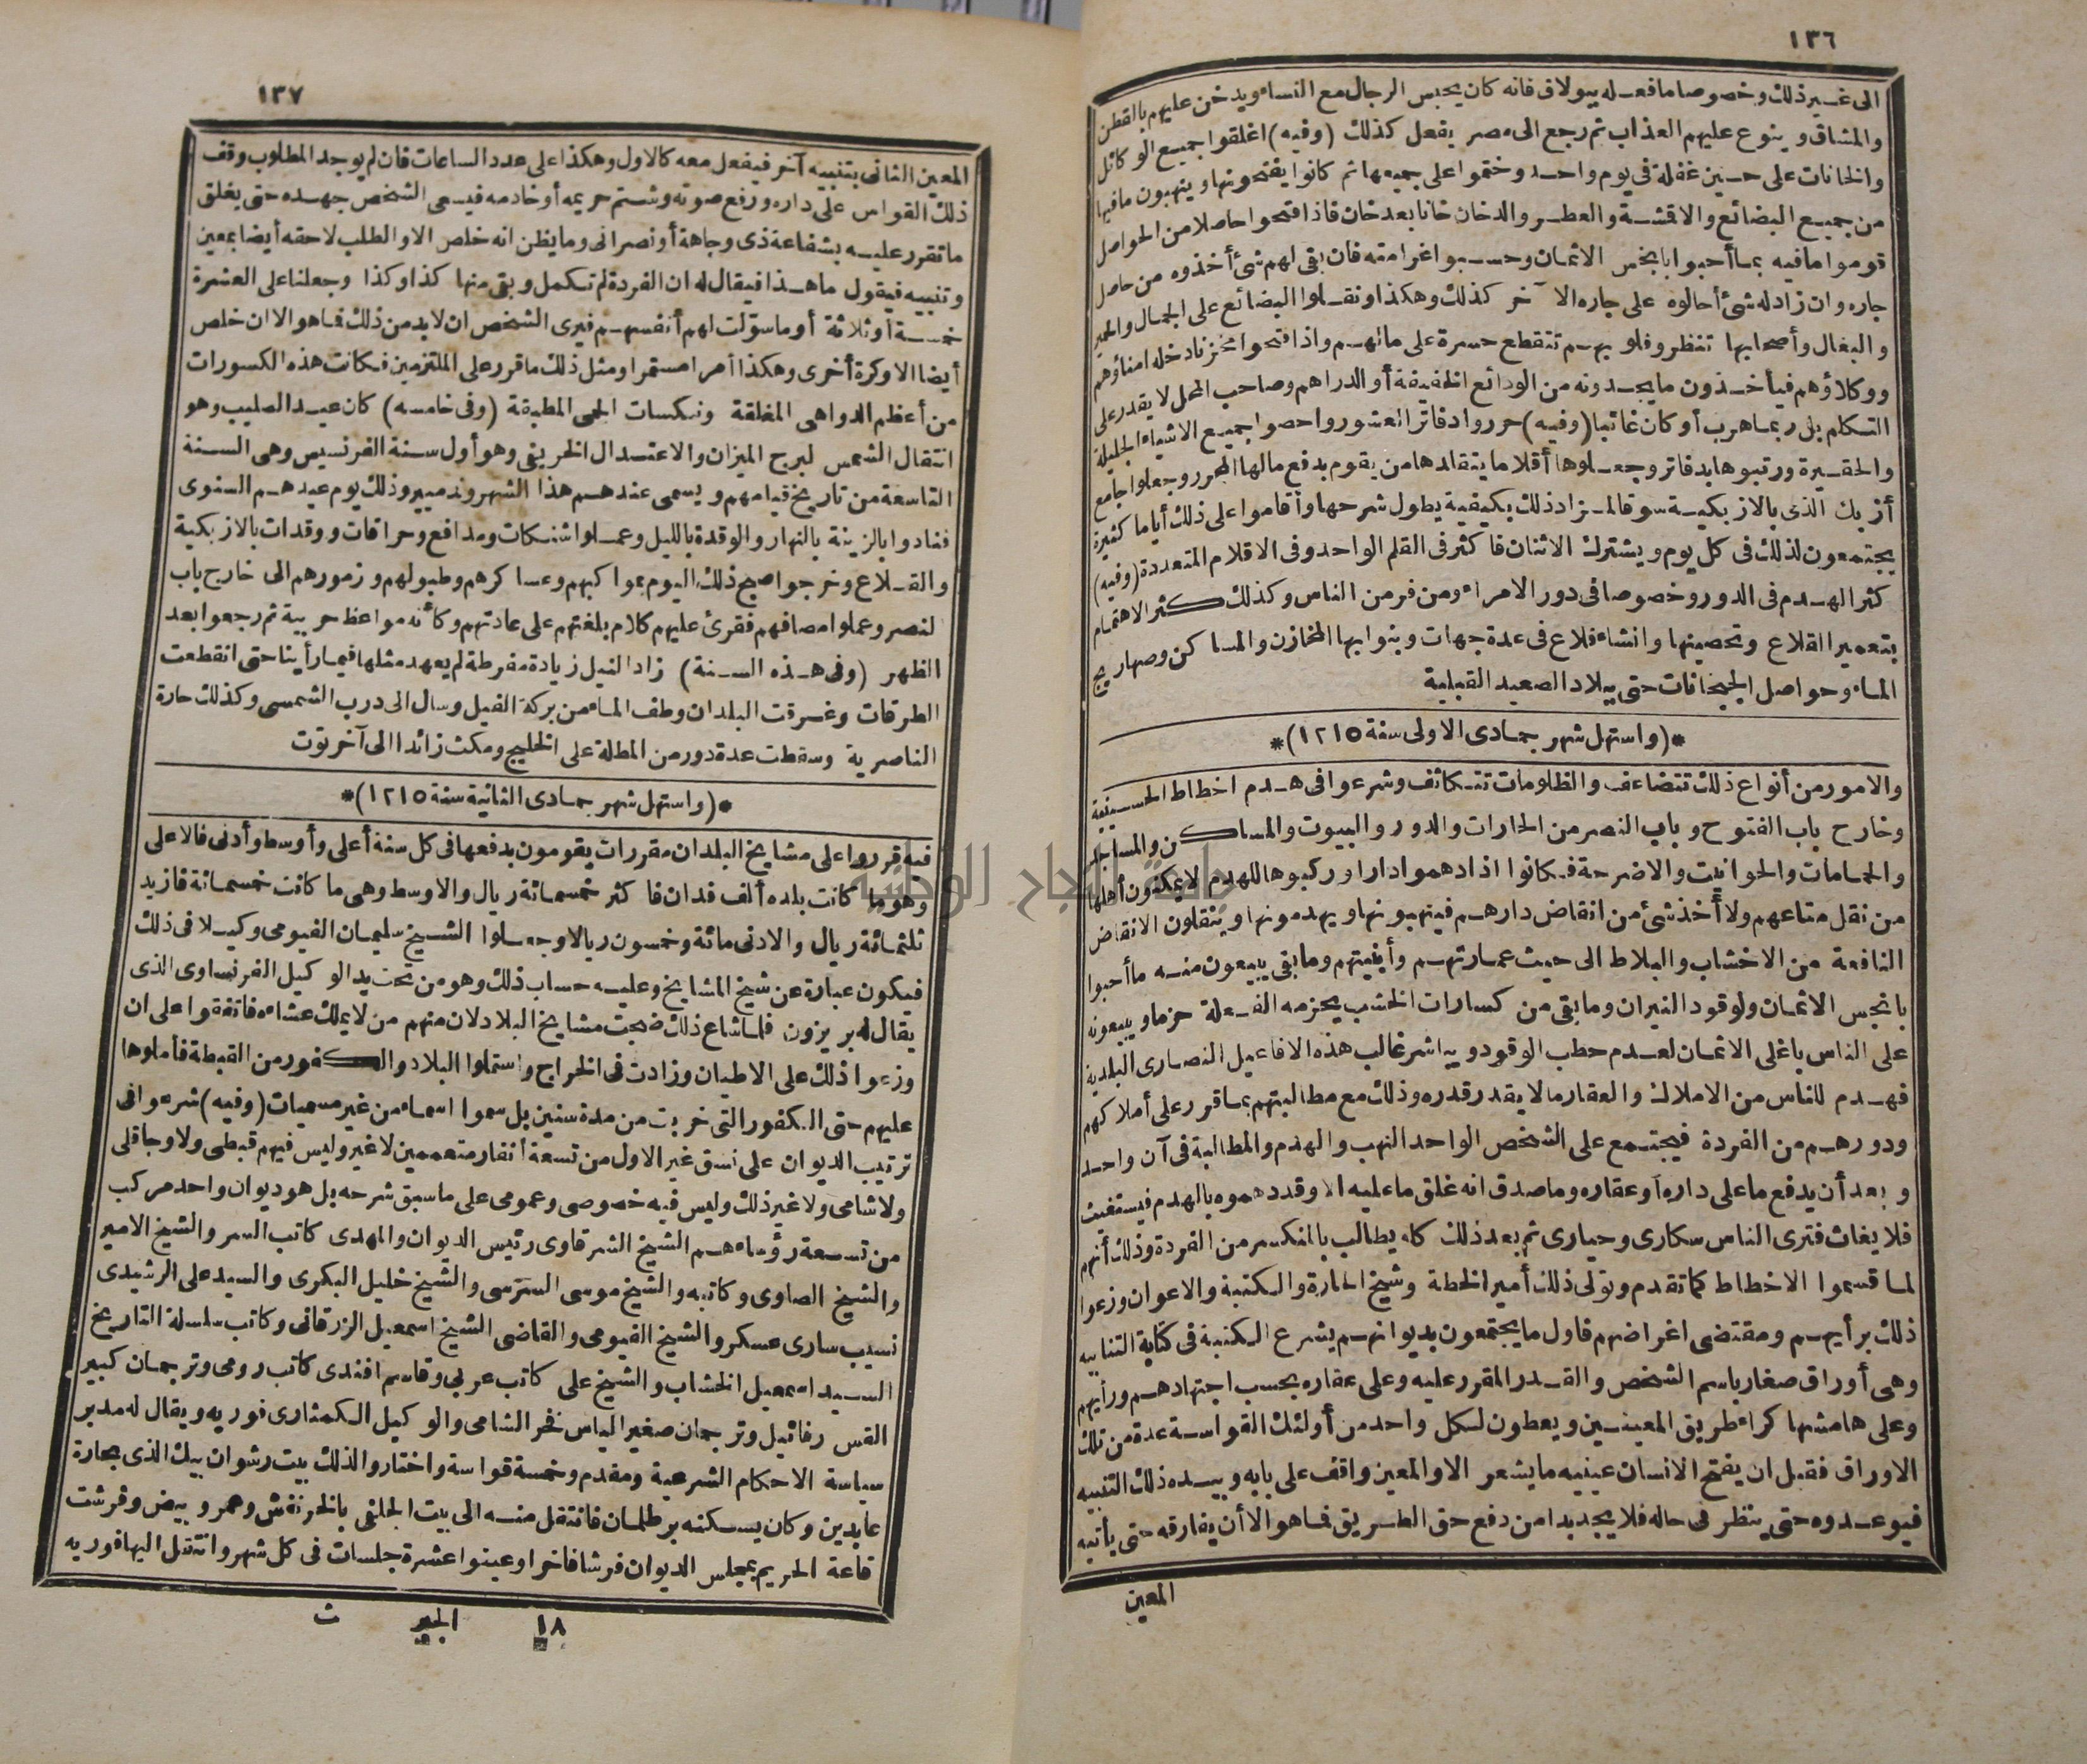 ١٣٦
الى غير ذلك وخصوصا ما فعله ببولاق فانه كان يحبس الرجال مع النساء ويدخن عليهم بالقطن
والمشاق وينوع عليهم العذاب ثم رجع الى مصر يفعل كذلك (وفيه) اغلقوا جميع الوكائل
والخانات على حين غفلة فى يوم واحد وختموا على جميعها ثم كانوا يفتحونها وينهبون ما فيها
من جميع البضائع والاقمشة والعطر والدخان خانا بعد خان فاذا فتحوا حاصلا من الحواصل
قوموا ما فيه بما أحبوا بابخس الاثمان وحسبوا غرامته فان بقى لهم شئ أخذوه من حاصل
جاره وان زاد له شئ أحالوه على جاره الآخر كذلك وهكذا ونقلوا البضائع على الجمال والحمير
والبغال وأصحابها تنظر وقلوبهم تتقطع حسرة على مالهم واذا فتحوا مخزنا دخله امناؤهم
ووكلاؤهم فيأخذون ما يجدونه من الودائع الخفيفة أو الدراهم وصاحب المحل لا يقدر على
التكلم بل ربما هرب أو كان غائبا (وفيه) حرروا دفاتر العشور واحصوا جميع الاشياء الجليلة
والحقيرة ورتبوها بدفاتر وجعلوها أقلاما يتقلدها من يقوم بدفع مالها المحرر وجعلوا جامع
أزبك الذى بالازبكية سوقا لمزاد ذلك بكيفية يطول شرحها وأقاموا على ذلك أياما كثيرة
يجتمعون لذلك فى كل يوم ويشترك الاثنان فاكثر فى القلم الواحد وفى الاقلام المتعددة (وفيه)
كثر الهدم فى الدور وخصوصا فى دور الامراء ومن فر من الناس وكذلك كثر الاهتمام
بتعمير القلاع وتحصينها وانشاء قلاع فى عدة جهات وبنوا بها المخازن والمساكن وصهاريج
الماء وحواصل الجبخانات حتى ببلاد الصعيد القبلية
*(واستهل شهر جمادى الاولى سنة ١٢١٥)*
والامور من أنواع ذلك تتضاعف والظلومات تتكاثف وشرعوا فى هدم اخطاط الحسينية
وخارج باب الفتوح وباب النصر من الحارات والدور والبيوت والمساكن والمساجد
والحمامات والحوانيت والاضرحة فكانوا اذا دهموا دارا وركبوها للهدم لا يمكنون أهلها
من نقل متاعهم ولا أخذ شئ من انقاض دارهم فينهبونها ويهدمونها وينقلون الانقاض
النافعة من الاخشاب والبلاط الى حيث عمارتهم وأبنيتهم وما بقى يبيعون منه ما أحبوا
بابخس الاثمان ولوقود النيران وما بقى من كسارات الخشب يحزمه الفعلة حزما ويبيعونه
على الناس باغلى الاثمان لعدم حطب الوقود ويباشر غالب هذه الافاعيل النصارى البلدية
فهدم للناس من الاملاك والعقار ما لا يقدر قدره وذلك مع مطالبتهم بما قرر على أملاكهم
ودورهم من الفردة فيجتمع على الشخص الواحد النهب والهدم والمطالبة فى آن واحد
وبعد أن يدفع ما على داره أو عقاره وما صدق انه غلق ما عليه الا وقد دهموه بالهدم فيستغيث
فلا يغاث فترى الناس سكارى وحيارى ثم بعد ذلك كله يطالب بالمنكسر من الفردة وذلك أنهم
لما قسموا الاخطاط كما تقدم وتولى ذلك أمير الخطة وشيخ الحارة والكتبة والاعوان وزعوا
ذلك برأيهم ومقتضى اغراضهم فاول ما يجتمعون بديوانهم يشرع الكتبة فى كتابة التنابيه
وهى أوراق صغار باسم الشخص والقدر المقرر عليه وعلى عقاره بحسب اجتهادهم ورأيهم
وعلى هامشها كراء طريق المعينين ويعطون لكل واحد من أولئك القواسة عدة من تلك
الاوراق فقبل ان يفتح الانسان عينيه ما يشعر الا والمعين واقف على بابه وبيده ذلك التنبيه
فيوعده حتى ينظر فى حاله فلا يجد بدا من دفع حق الطريق فما هو الا أن يفارقه حتى يأتيه
المعين
١٣٧
المعين الثانى بتنبيه آخر فيفعل معه كالاول وهكذا على عدد الساعات فان لم يوجد المطلوب وقف
ذلك القواس على داره ورفع صوته وشتم حريمه أو خادمه فيسعى الشخص جهده حتى يغلق
ما تقرر عليه بشفاعة ذى وجاهة أو نصرانى وما يظن انه خلص الا والطلب لاحقه أيضا بمعين
وتنبيه فيقول ما هذا فيقال له ان الفردة لم تكمل وبقى منها كذا وكذا وجعلنا على العشرة
خمسة أو ثلاثة أو ما سولت لهم أنفسهم فيرى الشخص ان لا بد من ذلك فما هو الا ان خلص
أيضا الا وكرة أخرى وهكذا أمرا مستمرا ومثل ذلك ما قرر على الملتزمين فكانت هذه الكسورات
من أعظم الدواهى المغلقة ونكسات الحمى المطبقة (وفى خامسه) كان عيد الصليب وهو
انتقال الشمس لبرج الميزان والاعتدال الخريفى وهو أول سنة الفرنسيس وهى السنة
التاسعة من تاريخ قيامهم ويسمى عندهم هذا الشهر وندميير وذلك يوم عيدهم السنوى
فنادوا بالزينة بالنهار والوقدة بالليل وعملوا شنكات ومدافع وحراقات ووقدات بالازبكية
والقلاع وخرجوا صبح ذلك اليوم بمواكبهم وعساكرهم وطبولهم وزمورهم الى خارج باب
لنصر وعملوا مصافهم فقرئ عليهم كلام بلغتهم على عادتهم وكأنه مواعظ حربية ثم رجعوا بعد
الظهر (وفى هذه السنة) زاد النيل زيادة مفرطة لم يعهد مثلها فيما رأينا حتى انقطعت
الطرقات وغرقت البلدان وطف الماء من بركة الفيل وسال الى درب الشمسى وكذلك حارة
الناصرية وسقطت عدة دور من المطلة على الخليج ومكث زائدا الى آخر توت
*(واستهل شهر جمادى الثانية سنة ١٢١٥)*
فيه قرروا على مشايخ البلدان مقررات يقومون بدفعها فى كل سنة أعلى وأوسط وأدنى فالاعلى
وهو ما كانت بلده ألف فدان فاكثر خمسمائة ريال والاوسط وهى ما كانت خمسمائة فازيد
ثلثمائة ريال والادنى مائة وخمسون ريالا وجعلوا الشيخ سليمان الفيومى وكيلا فى ذلك
فيكون عبارة عن شيخ المشايخ وعليه حساب ذلك وهو من تحت يد الوكيل الفرنساوى الذى
يقال له بريزون فلما شاع ذلك ضجت مشايخ البلاد لان منهم من لا يملك عشاءه فاتفقوا على ان
وزعوا ذلك على الاطيان وزادت فى الخراج واستملوا البلاد والكفور من القبطة فأملوها
عليهم حتى الكفور التى خربت من مدة سنين بل سموا اسماء من غير مسميات (وفيه) شرعوا فى
ترتيب الديوان على نسق غير الاول من تسعة أنفار متعممين لا غير وليس فيهم قبطى ولا وجاقلى
ولا شامى ولا غير ذلك وليس فيه خصوصى وعمومى على ما سبق شرحه بل هو ديوان واحد مركب
من تسعة رؤساء هم الشيخ الشرقاوى رئيس الديوان والمهدى كاتب السر والشيخ الامير
والشيخ الصاوى وكاتبه والشيخ موسى السرسى والشيخ خليل البكرى والسيد على الرشيدى
نسيب سارى عسكر والشيخ الفيومى والقاضى الشيخ اسمعيل الزرقانى وكاتب سلسلة التاريخ
السيد اسمعيل الخشاب والشيخ على كاتب عربى وقاسم افندى كاتب رومى وترجمان كبير
القس رفائيل وترجمان صغير الياس فخر الشامى والوكيل الكمثارى فوريه ويقال له مدبر
سياسة الاحكام الشرعية ومقدم وخمسة قواسة واختاروا لذلك بيت رشوان بيك الذى بحارة
عابدين وكان يسكنه برطلمان فانتقل منه الى بيت الجلفى بالخرنفش وعمر وبيض وفرشت
قاعة الحريم بمجلس الديوان فرشا فاخرا وعينوا عشرة جلسات فى كل شهر وانتقل اليها فوريه
١٨ الجبر ث
جامعة النجاح الوطنية